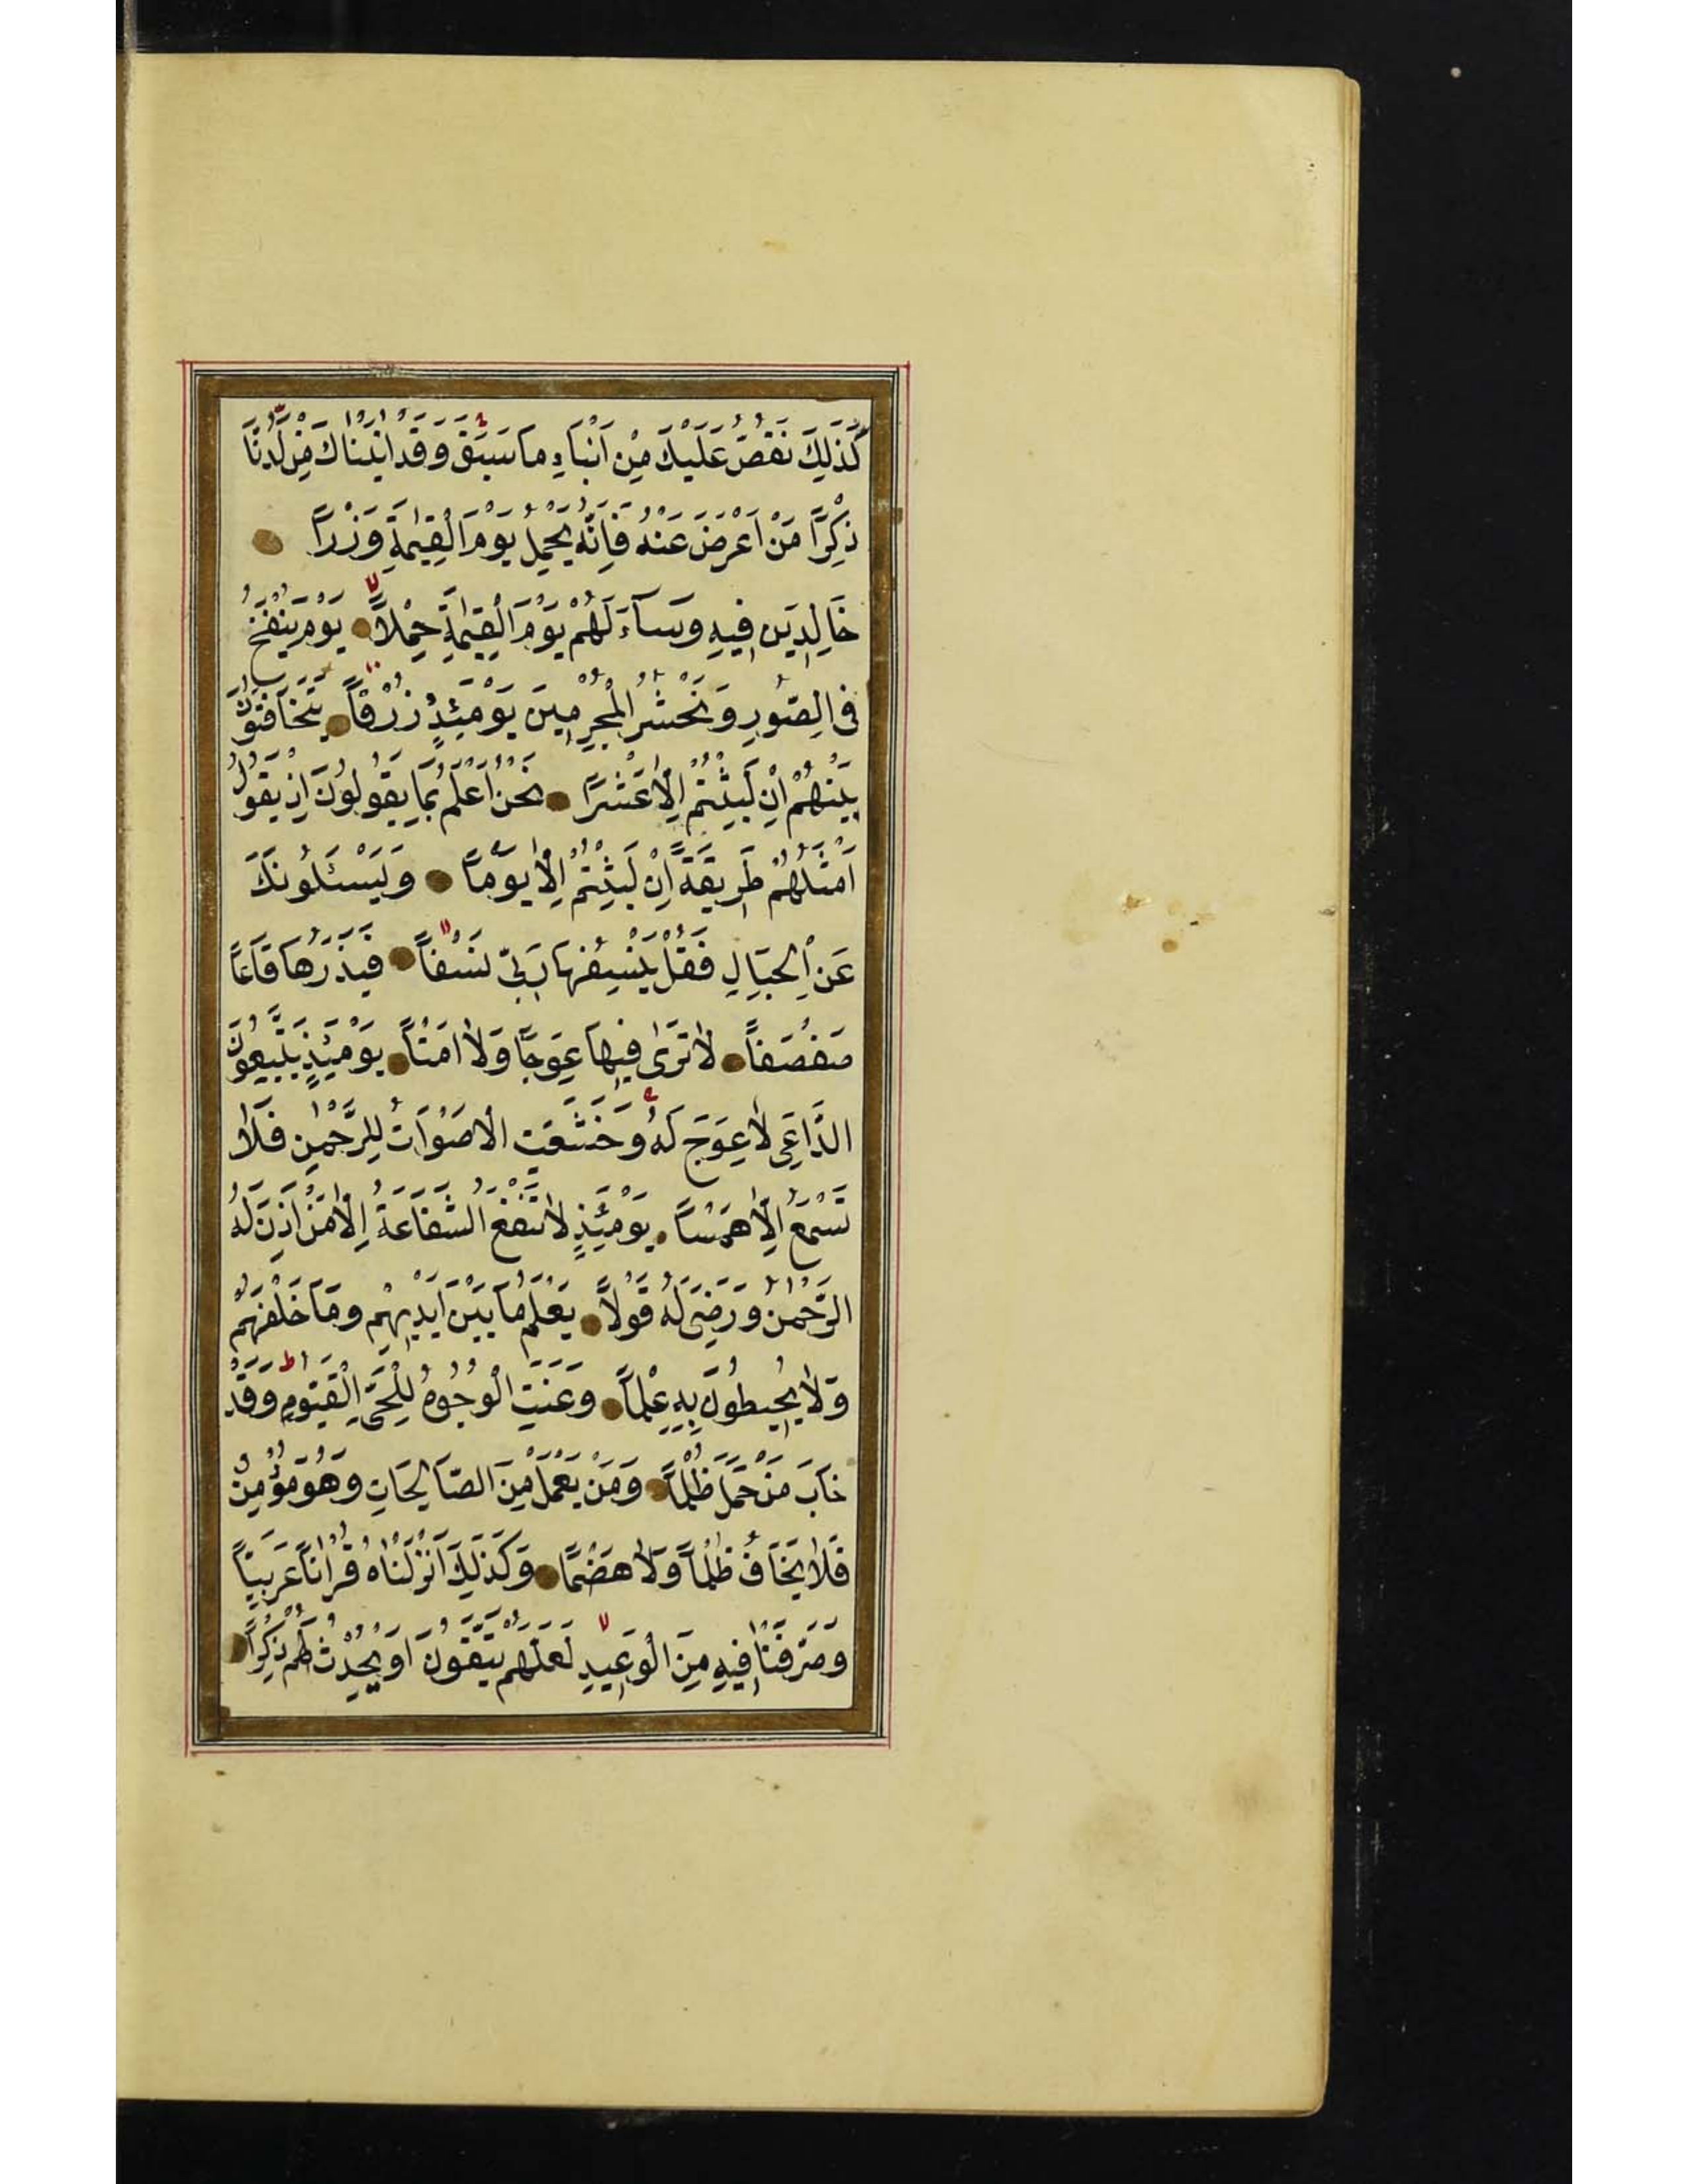 كَذٰلِكَ نَقُصُّ عَلَيْكَ مِنْ اَنْبَاۤءِ مَا سَبَقَ وَقَدْ اٰتَيْنَاكَ مِنْ لَدُنَّا
ذِكْرًا مَنْ اَعْرَضَ عَنْهُ فَاِنَّهُ يَحْمِلُ يَوْمَ الْقِيٰمَةِ وِزْرًا
خَالِدِينَ فِيهِ وَسَاۤءَ لَهُمْ يَوْمَ الْقِيٰمَةِ حِمْلًا يَوْمَ يُنْفَخُ
فِى الصُّورِ وَنَحْشُرُ الْمُجْرِمِينَ يَوْمَئِذٍ زُرْقًا يَتَخَافَتُونَ
بَيْنَهُمْ اِنْ لَبِثْتُمْ اِلَّا عَشْرًا نَحْنُ اَعْلَمُ بِمَا يَقُولُونَ اِذْ يَقُولُ
اَمْثَلُهُمْ طَرِيقَةً اِنْ لَبِثْتُمْ اِلَّا يَوْمًا وَيَسْـَٔلُونَكَ
عَنِ الْجِبَالِ فَقُلْ يَنْسِفُهَا رَبِّى نَسْفًا فَيَذَرُهَا قَاعًا
صَفْصَفًا لَا تَرٰى فِيهَا عِوَجًا وَلَا اَمْتًا يَوْمَئِذٍ يَتَّبِعُونَ
الدَّاعِىَ لَا عِوَجَ لَهُ وَخَشَعَتِ الْاَصْوَاتُ لِلرَّحْمٰنِ فَلَا
تَسْمَعُ اِلَّا هَمْسًا يَوْمَئِذٍ لَا تَنْفَعُ الشَّفَاعَةُ اِلَّا مَنْ اَذِنَ لَهُ
الرَّحْمٰنُ وَرَضِىَ لَهُ قَوْلًا يَعْلَمُ مَا بَيْنَ اَيْدِيهِمْ وَمَا خَلْفَهُمْ
وَلَا يُحِيطُونَ بِهِ عِلْمًا وَعَنَتِ الْوُجُوهُ لِلْحَىِّ الْقَيُّومِ وَقَدْ
خَابَ مَنْ حَمَلَ ظُلْمًا وَمَنْ يَعْمَلْ مِنَ الصَّالِحَاتِ وَهُوَ مُؤْمِنٌ
فَلَا يَخَافُ ظُلْمًا وَلَا هَضْمًا وَكَذٰلِكَ اَنْزَلْنَاهُ قُرْاٰنًا عَرَبِيًّا
وَصَرَّفْنَا فِيهِ مِنَ الْوَعِيدِ لَعَلَّهُمْ يَتَّقُونَ اَوْ يُحْدِثُ لَهُمْ ذِكْرًا